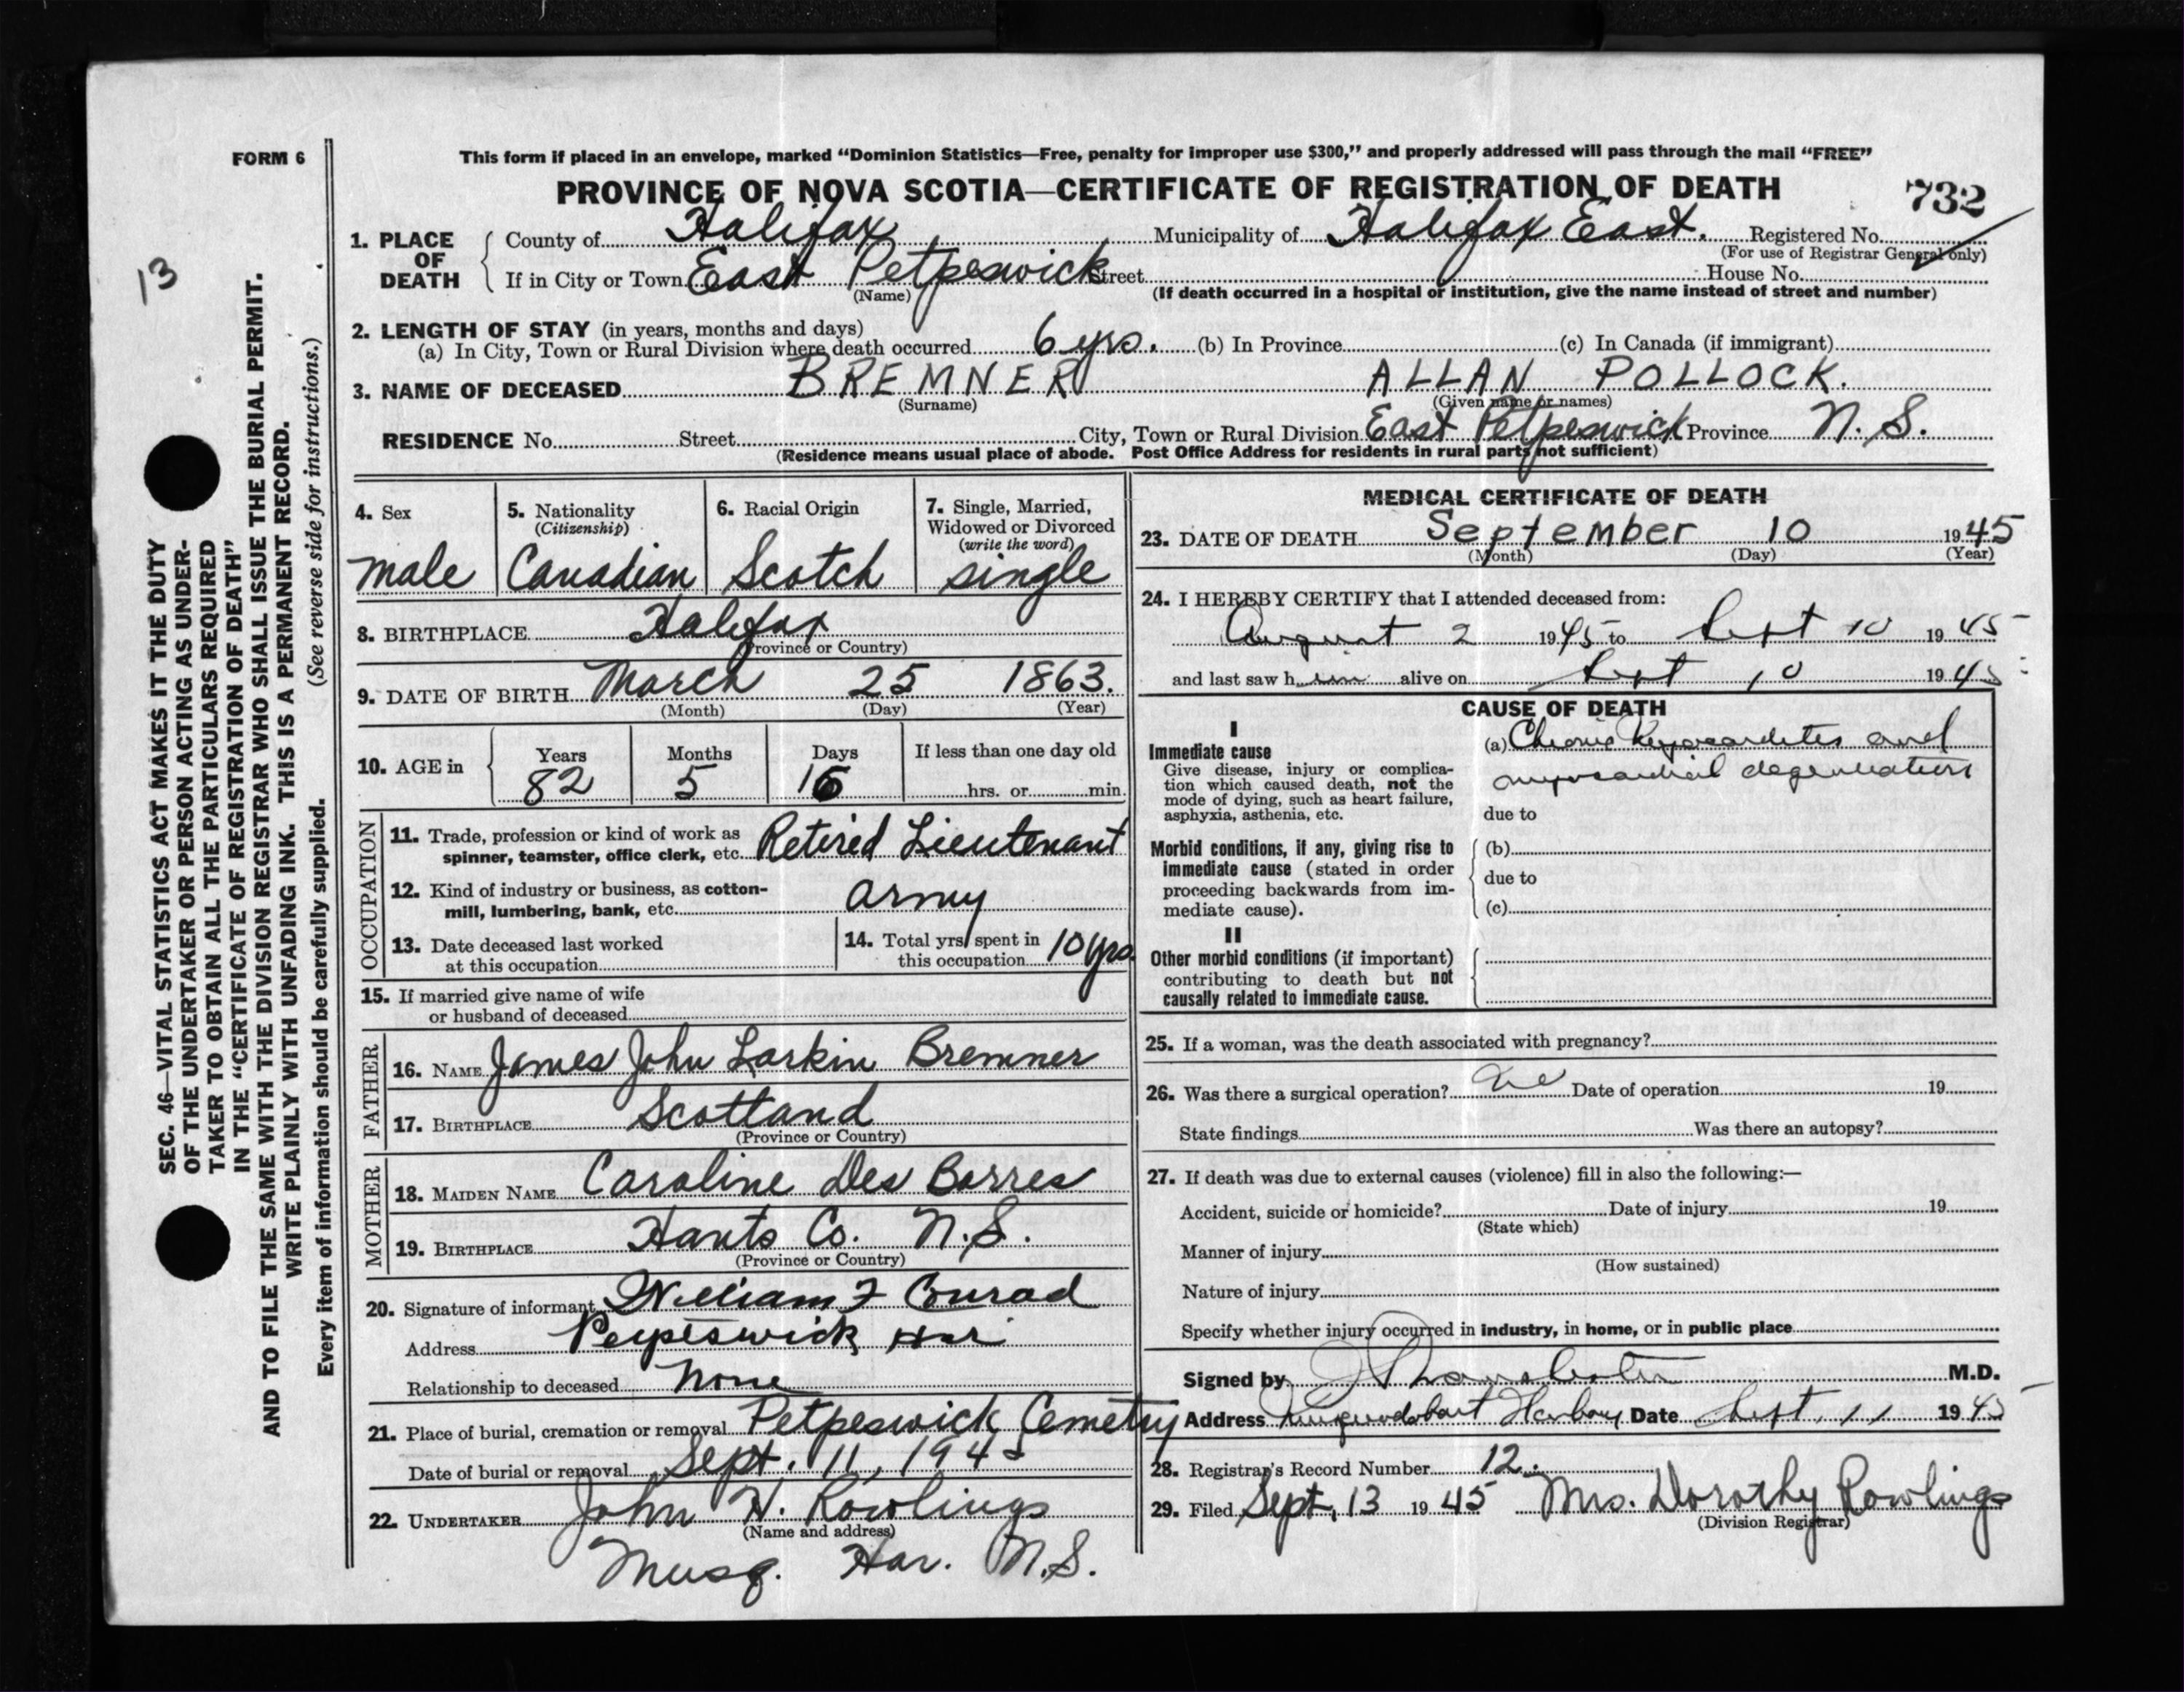 FORM 6
This form if placed in an envelope, marked “Dominion Statistics—Free, penalty for improper use $300,” and properly addressed will pass through the mail “FREE”
PROVINCE OF NOVA SCOTIA—CERTIFICATE OF REGISTRATION OF DEATH
732
13
SEC. 46—VITAL STATISTICS ACT MAKES IT THE DUTY
OF THE UNDERTAKER OR PERSON ACTING AS UNDER-
TAKER TO OBTAIN ALL THE PARTICULARS REQUIRED
IN THE “CERTIFICATE OF REGISTRATION OF DEATH”
AND TO FILE THE SAME WITH THE DIVISION REGISTRAR WHO SHALL ISSUE THE BURIAL PERMIT.
WRITE PLAINLY WITH UNFADING INK. THIS IS A PERMANENT RECORD.
Every item of information should be carefully supplied. (See reverse side for instructions.)
1. PLACE OF DEATH
County of Halifax Municipality of Halifax East. Registered No.
(For use of Registrar General only)
If in City or Town East Petpeswick Street House No.
(Name) (If death occurred in a hospital or institution, give the name instead of street and number)
2. LENGTH OF STAY (in years, months and days)
(a) In City, Town or Rural Division where death occurred 6 yrs. (b) In Province (c) In Canada (if immigrant)
3. NAME OF DECEASED BREMNER ALLAN POLLOCK.
(Surname) (Given name or names)
RESIDENCE No. Street City, Town or Rural Division East Petpeswick Province N. S.
(Residence means usual place of abode. Post Office Address for residents in rural parts not sufficient)
4. Sex
male
5. Nationality
(Citizenship)
Canadian
6. Racial Origin
Scotch
7. Single, Married,
Widowed or Divorced
(write the word)
single
8. BIRTHPLACE Halifax
(Province or Country)
9. DATE OF BIRTH March 25 1863.
(Month) (Day) (Year)
10. AGE in
Years Months Days If less than one day old
82 5 16 hrs. or min.
OCCUPATION
11. Trade, profession or kind of work as
spinner, teamster, office clerk, etc. Retired Lieutenant
12. Kind of industry or business, as cotton-
mill, lumbering, bank, etc. army
13. Date deceased last worked
at this occupation
14. Total yrs. spent in
this occupation 10 yrs.
15. If married give name of wife
or husband of deceased
FATHER
16. NAME James John Larkin Bremner
17. BIRTHPLACE Scotland
(Province or Country)
MOTHER
18. MAIDEN NAME Caroline Des Barres
19. BIRTHPLACE Hants Co. N.S.
(Province or Country)
20. Signature of informant William F Conrad
Address Har
Relationship to deceased None
21. Place of burial, cremation or removal Petpeswick Cemetry
Date of burial or removal Sept. 11, 1945
22. UNDERTAKER John W. Rowlings
(Name and address)
Musq. Har. N.S.
MEDICAL CERTIFICATE OF DEATH
23. DATE OF DEATH September 10 1945
(Month) (Day) (Year)
24. I HEREBY CERTIFY that I attended deceased from:
August 2 1945 to Sept 10 1945
and last saw him alive on Sept 10 1945
CAUSE OF DEATH
I
Immediate cause
Give disease, injury or complica-
tion which caused death, not the
mode of dying, such as heart failure,
asphyxia, asthenia, etc.
(a) Chronic and
myocardial degeneration
due to
Morbid conditions, if any, giving rise to
immediate cause (stated in order
proceeding backwards from im-
mediate cause).
(b)
due to
(c)
II
Other morbid conditions (if important)
contributing to death but not
causally related to immediate cause.
25. If a woman, was the death associated with pregnancy?
26. Was there a surgical operation? Date of operation 19
State findings Was there an autopsy?
27. If death was due to external causes (violence) fill in also the following:—
Accident, suicide or homicide? Date of injury 19
(State which)
Manner of injury
(How sustained)
Nature of injury
Specify whether injury occurred in industry, in home, or in public place
Signed by M.D.
Address Musquodoboit Harbour Date Sept. 11 1945
28. Registrar's Record Number 12.
29. Filed Sept. 13 1945 Mrs. Dorothy Rowlings
(Division Registrar)